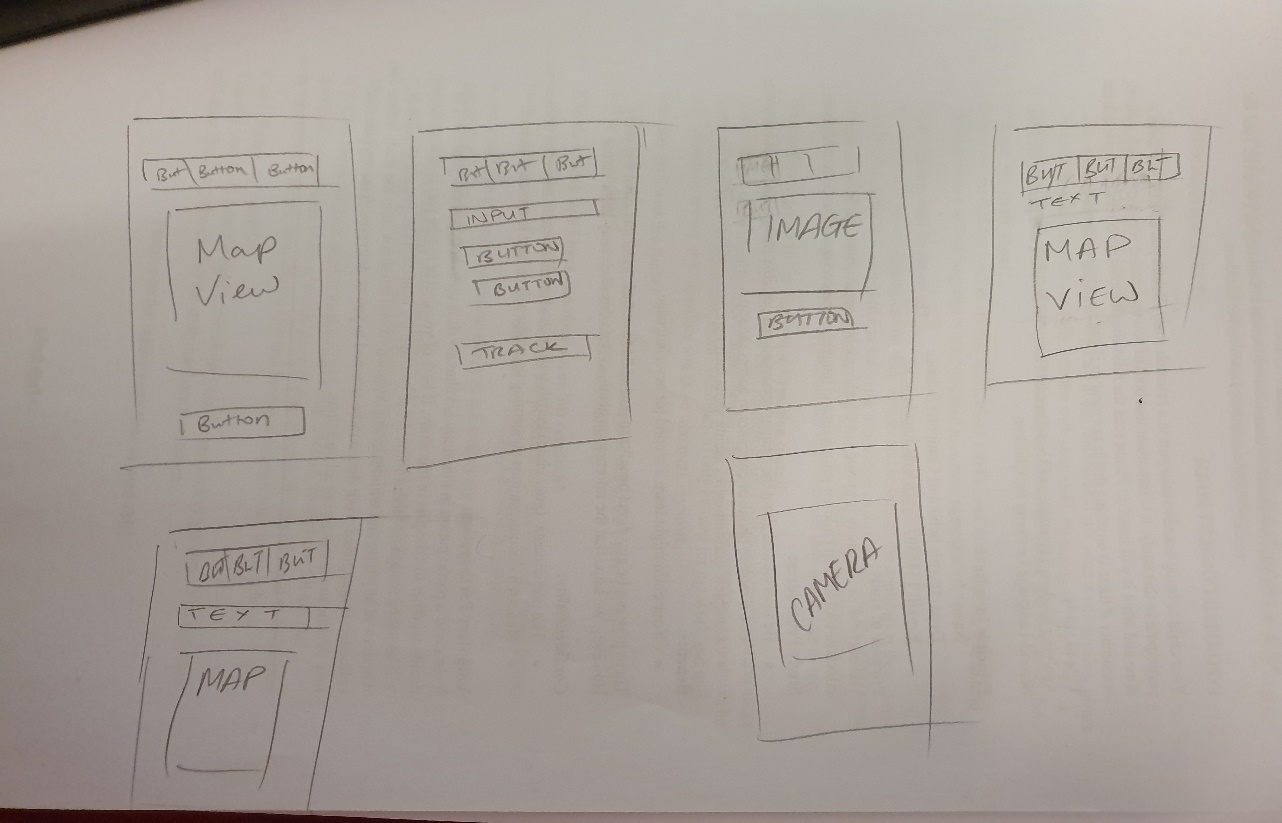 But Button Button
Map
View
Button
But But But
INPUT
BUTTON
BUTTON
TRACK
IMAGE
BUTTON
BUT BUT BUT
TEXT
MAP
VIEW
BUT BUT
TEXT
MAP
CAMERA